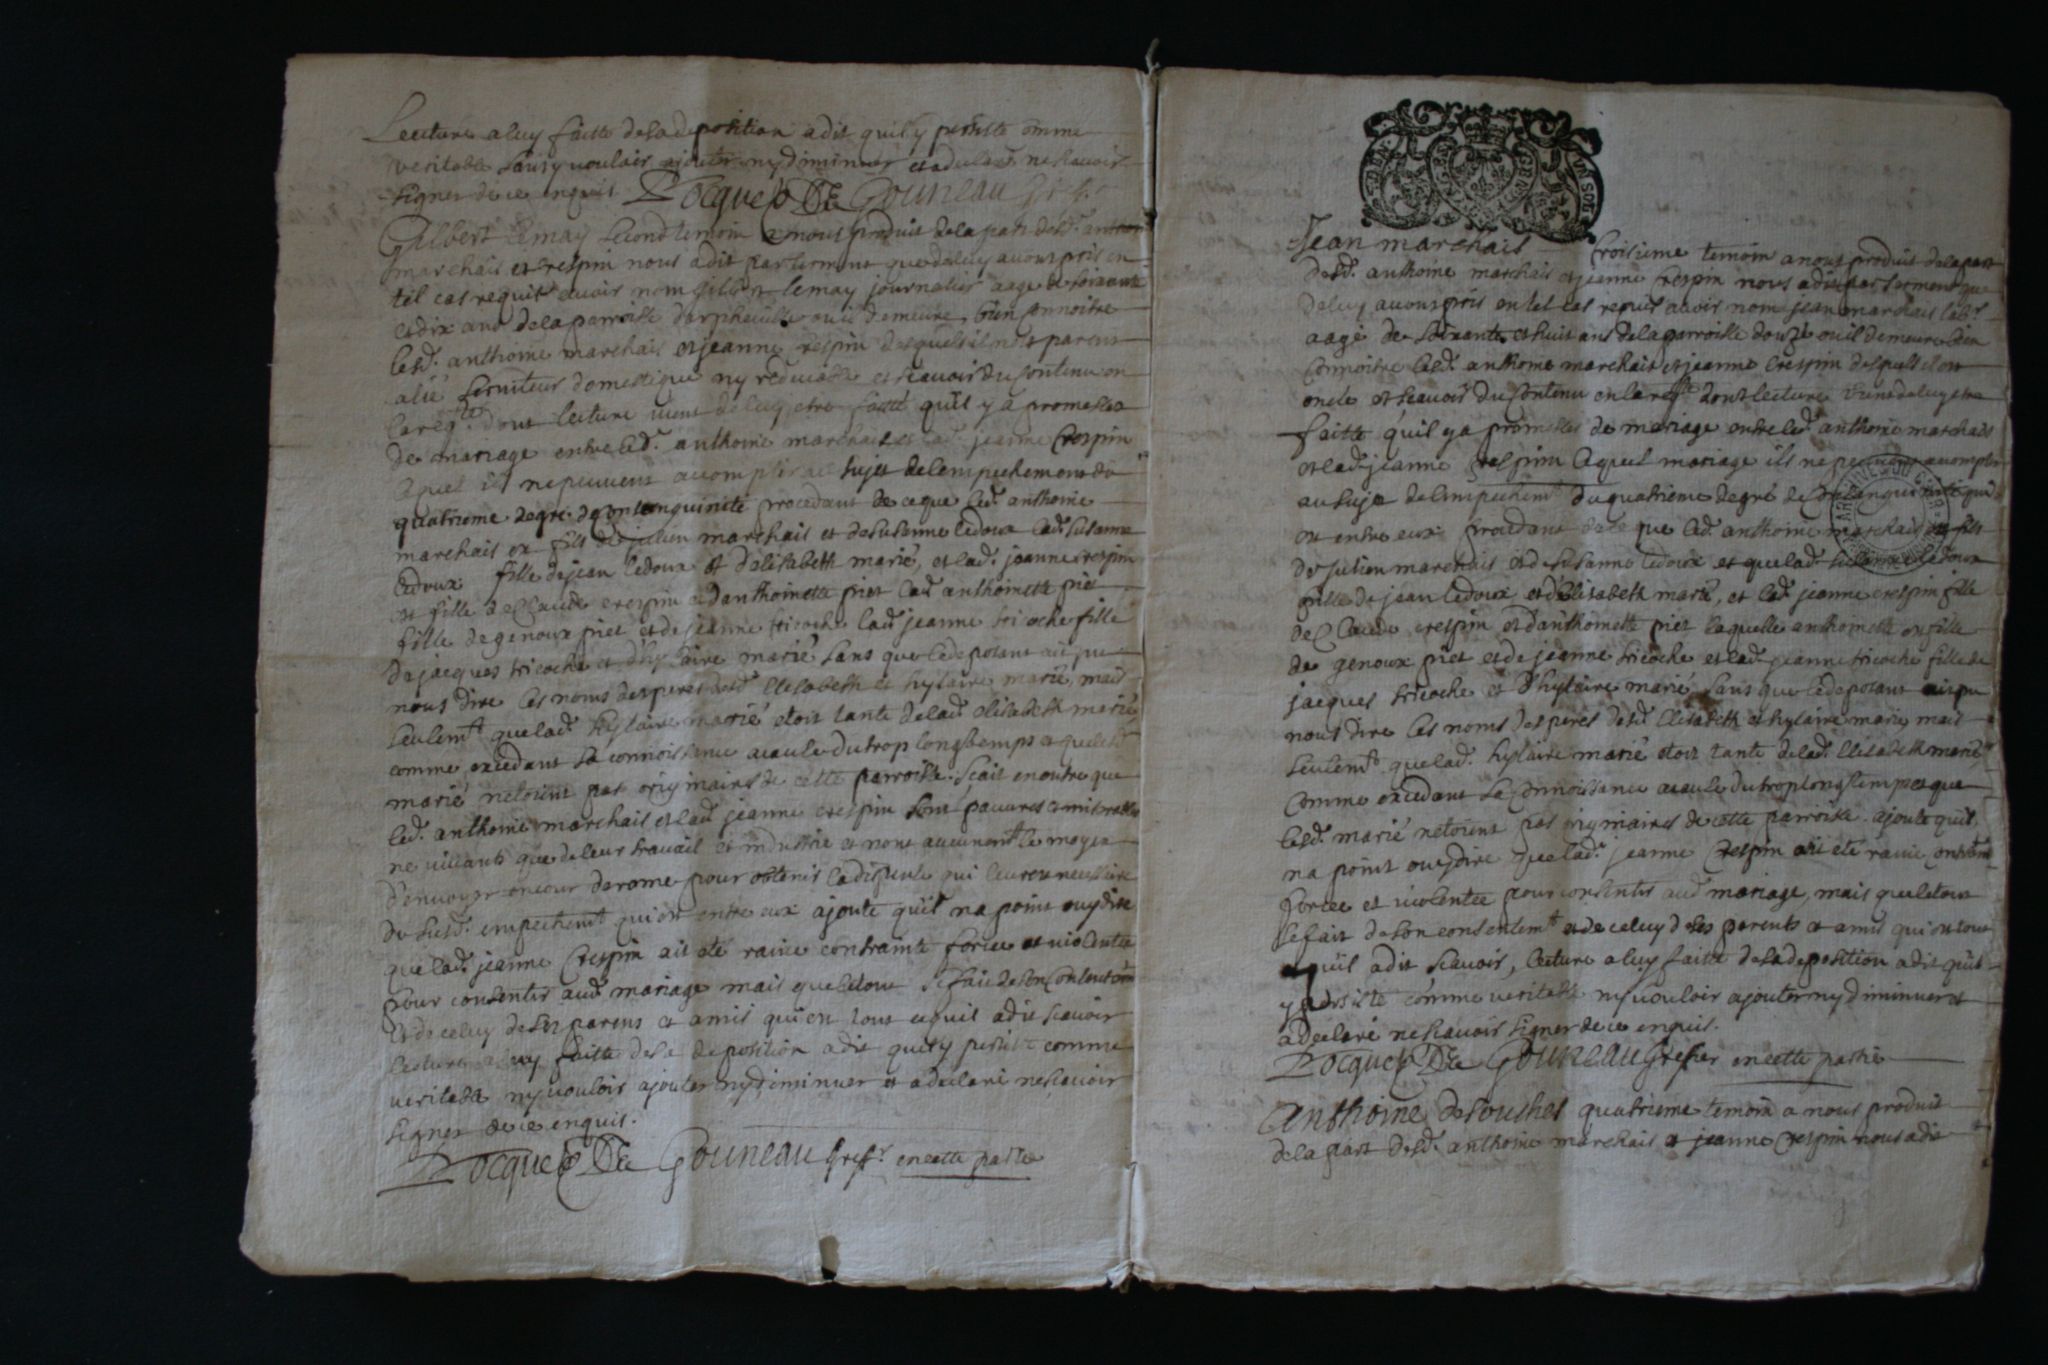 Lecture a luy faitte de sa deposition a dit quil y persiste comme
veritable sans y vouloir ajouter ny diminuer et a declaré ne scavoir
signer de ce enquis Pocquet DE Gouneau Gref.
Gilbert Lemay second temoin a nous produit de la part desd. anthoine
marchais et Crespin nous a dit par serment que de luy avons pris en
tel cas requis avoir nom gilbert lemay journalier aagé de soixante
et dix ans de la parroisse darpheuille ou il demeure, bien connoitre
lesd. anthoine marchais et jeanne crespin desquels il nest parent
alié serviteur domestique ny redevable et scavoir du contenu en
la reqte. dont lecture vient de luy etre faitte quil y a promesses
de mariage entre led. anthoine marchais et lad. jeanne Crespin
aquel ils ne peuvent accomplir au sujet de lempechement du
quatrieme degré de consanguinité procedant de ce que led. anthoine
marchais est fils de julien marchais et de susanne ledoux lad. susanne
ledoux fille de jean ledoux et delisabeth marié, et lad. jeanne crespin
est fille de Claude crespin et danthoinette piet lad. anthoinette piet
fille de genoux piet et de jeanne tricoche lad. jeanne tricoche fille
de jacques tricoche et dhylaire marié sans que le deposant ait pu
nous dire les noms des peres desd. Elisabeth et hylaire marié, mais
seulemt. que lad. hylaire marié etoit tante de lad. elisabeth marié,
comme excedant sa connoissance acause du trop longtemps et que lesd.
marié netoient pas originaires de cette parroisse. scait en outre que
led. anthoine marchais et lad. jeanne crespin sont pauvres et miserables
ne vivants que de leur travail et industrie et nont aucunemt. le moyen
denvoyer en cour de rome pour obtenir la dispense qui leur est necessaire
du susd. empechemt. qui est entre eux ajoute quil na point ouy dire
que lad. jeanne Crespin ait eté ravie contrainte forcée et violentée
pour consentir aud. mariage mais que le tout se fait de son consentemt
et de celuy de ses parens et amis qui est tout ce quil a dit scavoir
lecture a luy faitte de sa deposition a dit quil y persiste comme
veritable ny vouloir ajouter ny diminuer et a declaré ne scavoir
signer de ce enquis.
Pocquet DE Gouneau Greff. en cette partie
UN SOL
Jean marchais troisieme temoin a nous produit de la part
desd. anthoine marchais et jeanne crespin nous a dit par serment que
de luy avons pris en tel cas requis avoir nom jean marchais labr.
aagé de soixante et huit ans de la parroisse douzé ou il demeure bien
connoitre lesd. anthoine marchais et jeanne crespin desquels il est
oncle et scavoir du contenu en la reqte. dont lecture vient de luy etre
faitte quil y a promesses de mariage entre led. anthoine marchais
et lad. jeanne crespin aquel mariage ils ne peuvent accomplir
au sujet de lempechemt. du quatrieme degré de consanguinité qui
est entre eux procedant de ce que led. anthoine marchais est fils
de Julien marchais et de susanne ledoux et que lad. susanne ledoux
fille de jean ledoux et dElisabeth marié, et led. jeanne crespin fille
de Claude crespin et danthoinette piet laquelle anthoinette est fille
de genoux piet et de jeanne tricoche et lad. jeanne tricoche fille de
jacques tricoche et dhylaire marié sans que le deposant ait pu
nous dire les noms des peres desd. Elisabeth et hylaire marié, mais
seulemt. que lad. hylaire marié etoit tante de lad. Elisabeth marié
comme excedant sa connoissance acause du trop long temps et que
lesd. marié netoient pas originaires de cette parroisse. ajoute quil
na point ouy dire que lad. jeanne crespin ait eté ravie
forcée et violentée pour consentir aud. mariage, mais que le tout
se fait de son consentemt. et de celuy de ses parents et amis qui est tout
ce quil a dit scavoir, lecture a luy faitte de sa deposition a dit quil
y persiste comme veritable ny vouloir ajouter ny diminuer et
a declaré ne scavoir signer de ce enquis.
Pocquet DE Gouneau Grefier en cette partie
Anthoine desouches quatrieme temoin a nous produit
de la part desd. anthoine marchais et jeanne crespin nous a dit